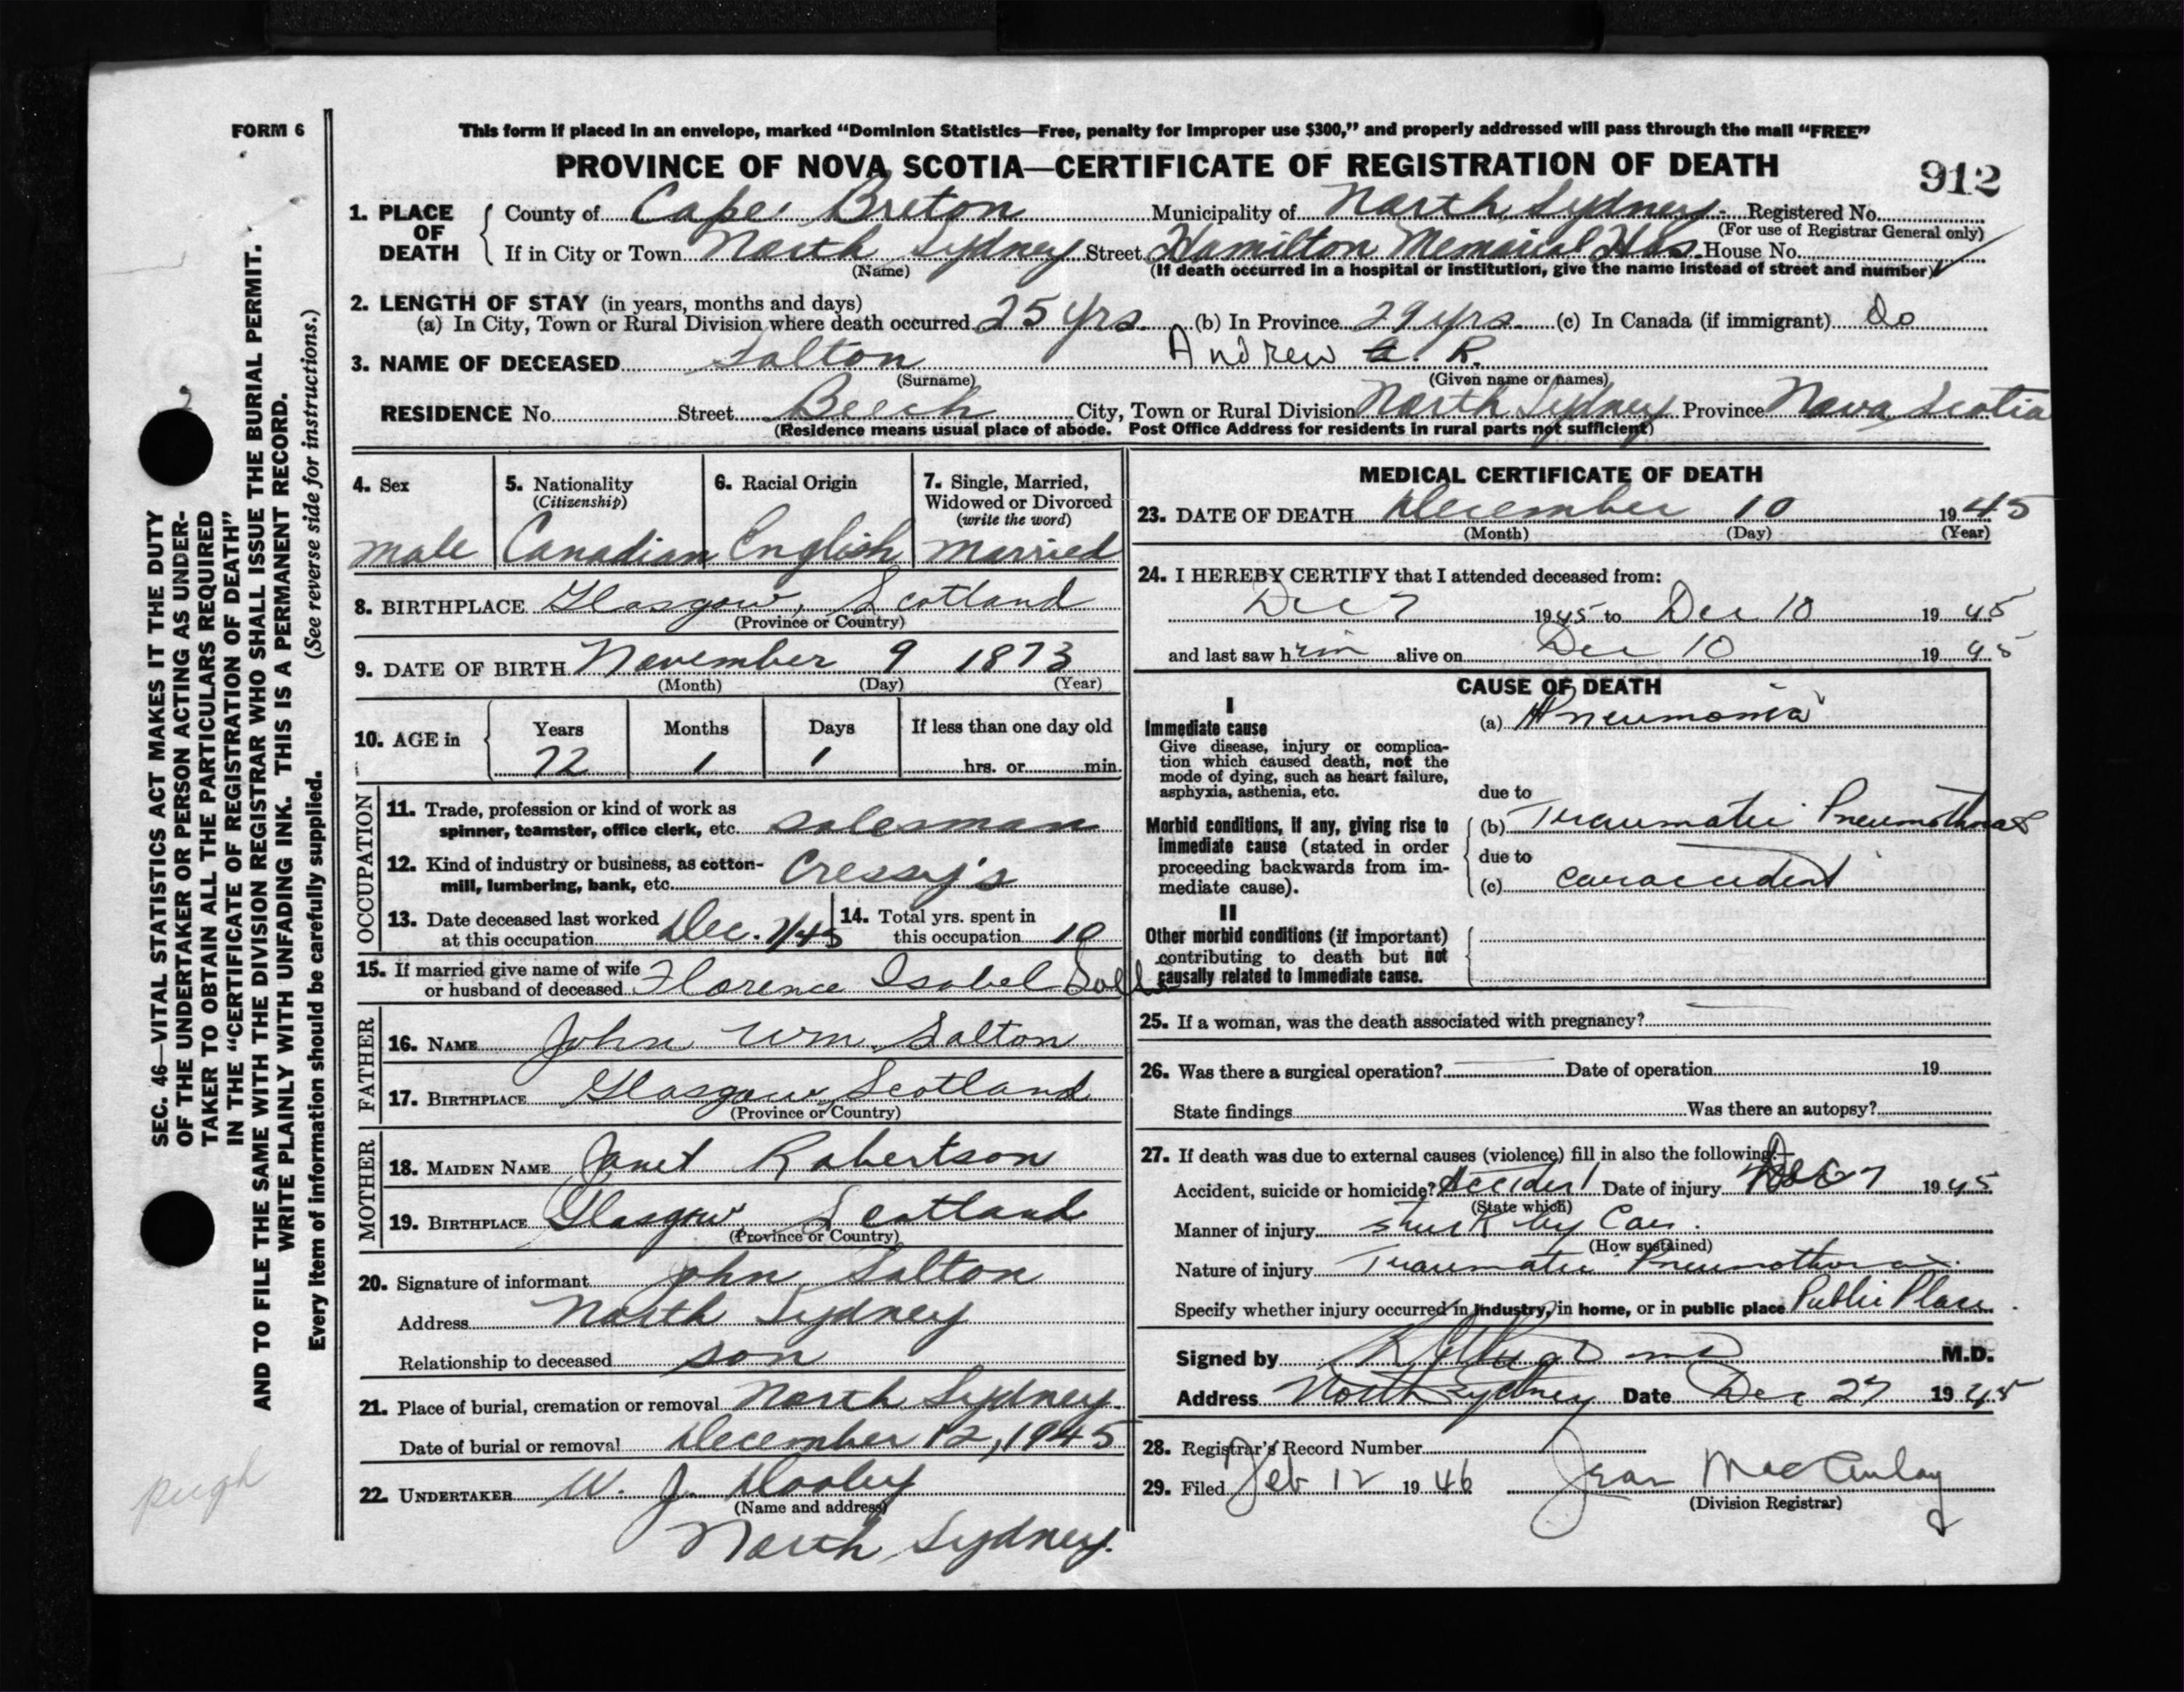 FORM 6
This form if placed in an envelope, marked “Dominion Statistics—Free, penalty for improper use $300,” and properly addressed will pass through the mail “FREE”
PROVINCE OF NOVA SCOTIA—CERTIFICATE OF REGISTRATION OF DEATH
912
1. PLACE OF DEATH
County of Cape Breton Municipality of North Sydney Registered No.
(For use of Registrar General only)
If in City or Town North Sydney Street Hamilton Memorial Hos. House No.
(Name) (If death occurred in a hospital or institution, give the name instead of street and number)
2. LENGTH OF STAY (in years, months and days)
(a) In City, Town or Rural Division where death occurred 25 yrs. (b) In Province 29 yrs. (c) In Canada (if immigrant) do
3. NAME OF DECEASED Salton Andrew R.
(Surname) (Given name or names)
RESIDENCE No. Street Beech City, Town or Rural Division North Sydney Province Nova Scotia
(Residence means usual place of abode. Post Office Address for residents in rural parts not sufficient)
4. Sex
male
5. Nationality
(Citizenship)
Canadian
6. Racial Origin
English
7. Single, Married,
Widowed or Divorced
(write the word)
married
8. BIRTHPLACE Glasgow, Scotland
(Province or Country)
9. DATE OF BIRTH November 9 1873
(Month) (Day) (Year)
10. AGE in
Years Months Days If less than one day old
72 1 1 hrs. or min.
OCCUPATION
11. Trade, profession or kind of work as
spinner, teamster, office clerk, etc. salesman
12. Kind of industry or business, as cotton-
mill, lumbering, bank, etc. Cressy's
13. Date deceased last worked
at this occupation Dec. 7/45
14. Total yrs. spent in
this occupation 10
15. If married give name of wife
or husband of deceased Florence Isabel
FATHER
16. NAME John Wm. Salton
17. BIRTHPLACE Glasgow, Scotland
(Province or Country)
MOTHER
18. MAIDEN NAME Janet Robertson
19. BIRTHPLACE Glasgow, Scotland
(Province or Country)
20. Signature of informant John Salton
Address North Sydney
Relationship to deceased son
21. Place of burial, cremation or removal North Sydney
Date of burial or removal December 12, 1945
22. UNDERTAKER W. J. Dooley
(Name and address)
North Sydney.
MEDICAL CERTIFICATE OF DEATH
23. DATE OF DEATH December 10 1945
(Month) (Day) (Year)
24. I HEREBY CERTIFY that I attended deceased from:
Dec 7 1945 to Dec 10 1945
and last saw him alive on Dec 10 1945
CAUSE OF DEATH
I
Immediate cause
Give disease, injury or complica-
tion which caused death, not the
mode of dying, such as heart failure,
asphyxia, asthenia, etc.
(a) Pneumonia
due to
Morbid conditions, if any, giving rise to
immediate cause (stated in order
proceeding backwards from im-
mediate cause).
(b) Traumatic Pneumothorax
due to
(c) car accident
II
Other morbid conditions (if important)
contributing to death but not
causally related to immediate cause.
25. If a woman, was the death associated with pregnancy?
26. Was there a surgical operation? Date of operation 19
State findings Was there an autopsy?
27. If death was due to external causes (violence) fill in also the following:—
Accident, suicide or homicide? Accident Date of injury Dec 7 1945
(State which)
Manner of injury struck by Car.
(How sustained)
Nature of injury Traumatic Pneumothorax.
Specify whether injury occurred in industry, in home, or in public place Public Place.
Signed by M.D.
Address North Sydney Date Dec 27 1945
28. Registrar's Record Number
29. Filed Feb 12 1946 Jean MacAulay
(Division Registrar)
SEC. 46—VITAL STATISTICS ACT MAKES IT THE DUTY
OF THE UNDERTAKER OR PERSON ACTING AS UNDER-
TAKER TO OBTAIN ALL THE PARTICULARS REQUIRED
IN THE “CERTIFICATE OF REGISTRATION OF DEATH”
AND TO FILE THE SAME WITH THE DIVISION REGISTRAR WHO SHALL ISSUE THE BURIAL PERMIT.
WRITE PLAINLY WITH UNFADING INK. THIS IS A PERMANENT RECORD.
Every item of information should be carefully supplied. (See reverse side for instructions.)
pugh